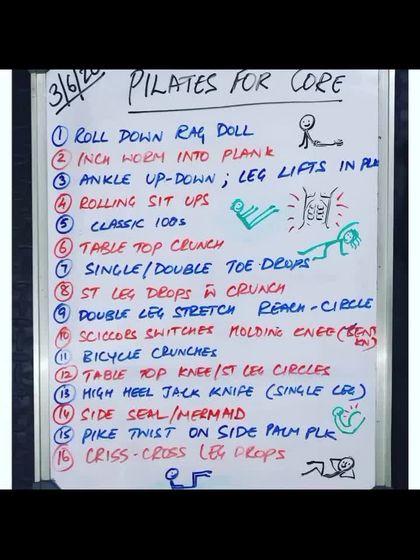 3/6/20
PILATES FOR CORE
1 ROLL DOWN RAG DOLL
2 INCH WORM INTO PLANK
3 ANKLE UP-DOWN ; LEG LIFTS IN PLK
4 ROLLING SIT UPS
5 CLASSIC 100s
6 TABLE TOP CRUNCH
7 SINGLE/DOUBLE TOE DROPS
8 ST LEG DROPS IN CRUNCH
9 DOUBLE LEG STRETCH REACH-CIRCLE
10 SCICCORS SWITCHES MOLDING KNEE (BENT KN)
11 BICYCLE CRUNCHES
12 TABLE TOP KNEE/ST LEG CIRCLES
13 HIGH HEEL JACK KNIFE (SINGLE LEG)
14 SIDE SEAL/MERMAID
15 PIKE TWIST ON SIDE PALM PLK
16 CRISS-CROSS LEG DROPS